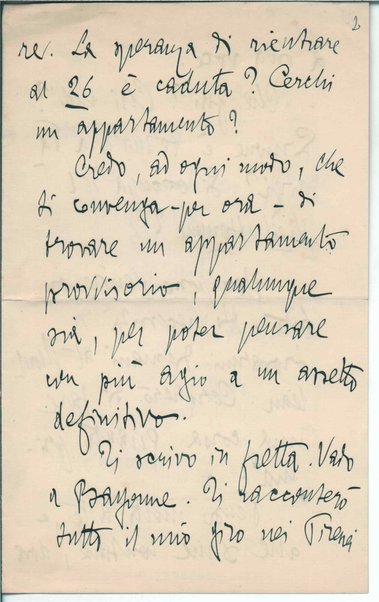 2
re. La speranza di rientrare
al 26 è caduta? Cerchi
un appartamento?
Credo, ad ogni modo, che
ti convenga - per ora - di
trovare un appartamento
provvisorio, qualunque
sia, per poter pensare
con più agio a un assetto
definitivo.
Ti scrivo in fretta. Vado
a Bayonne. Ti racconterò
tutto il mio giro nei Pirenei